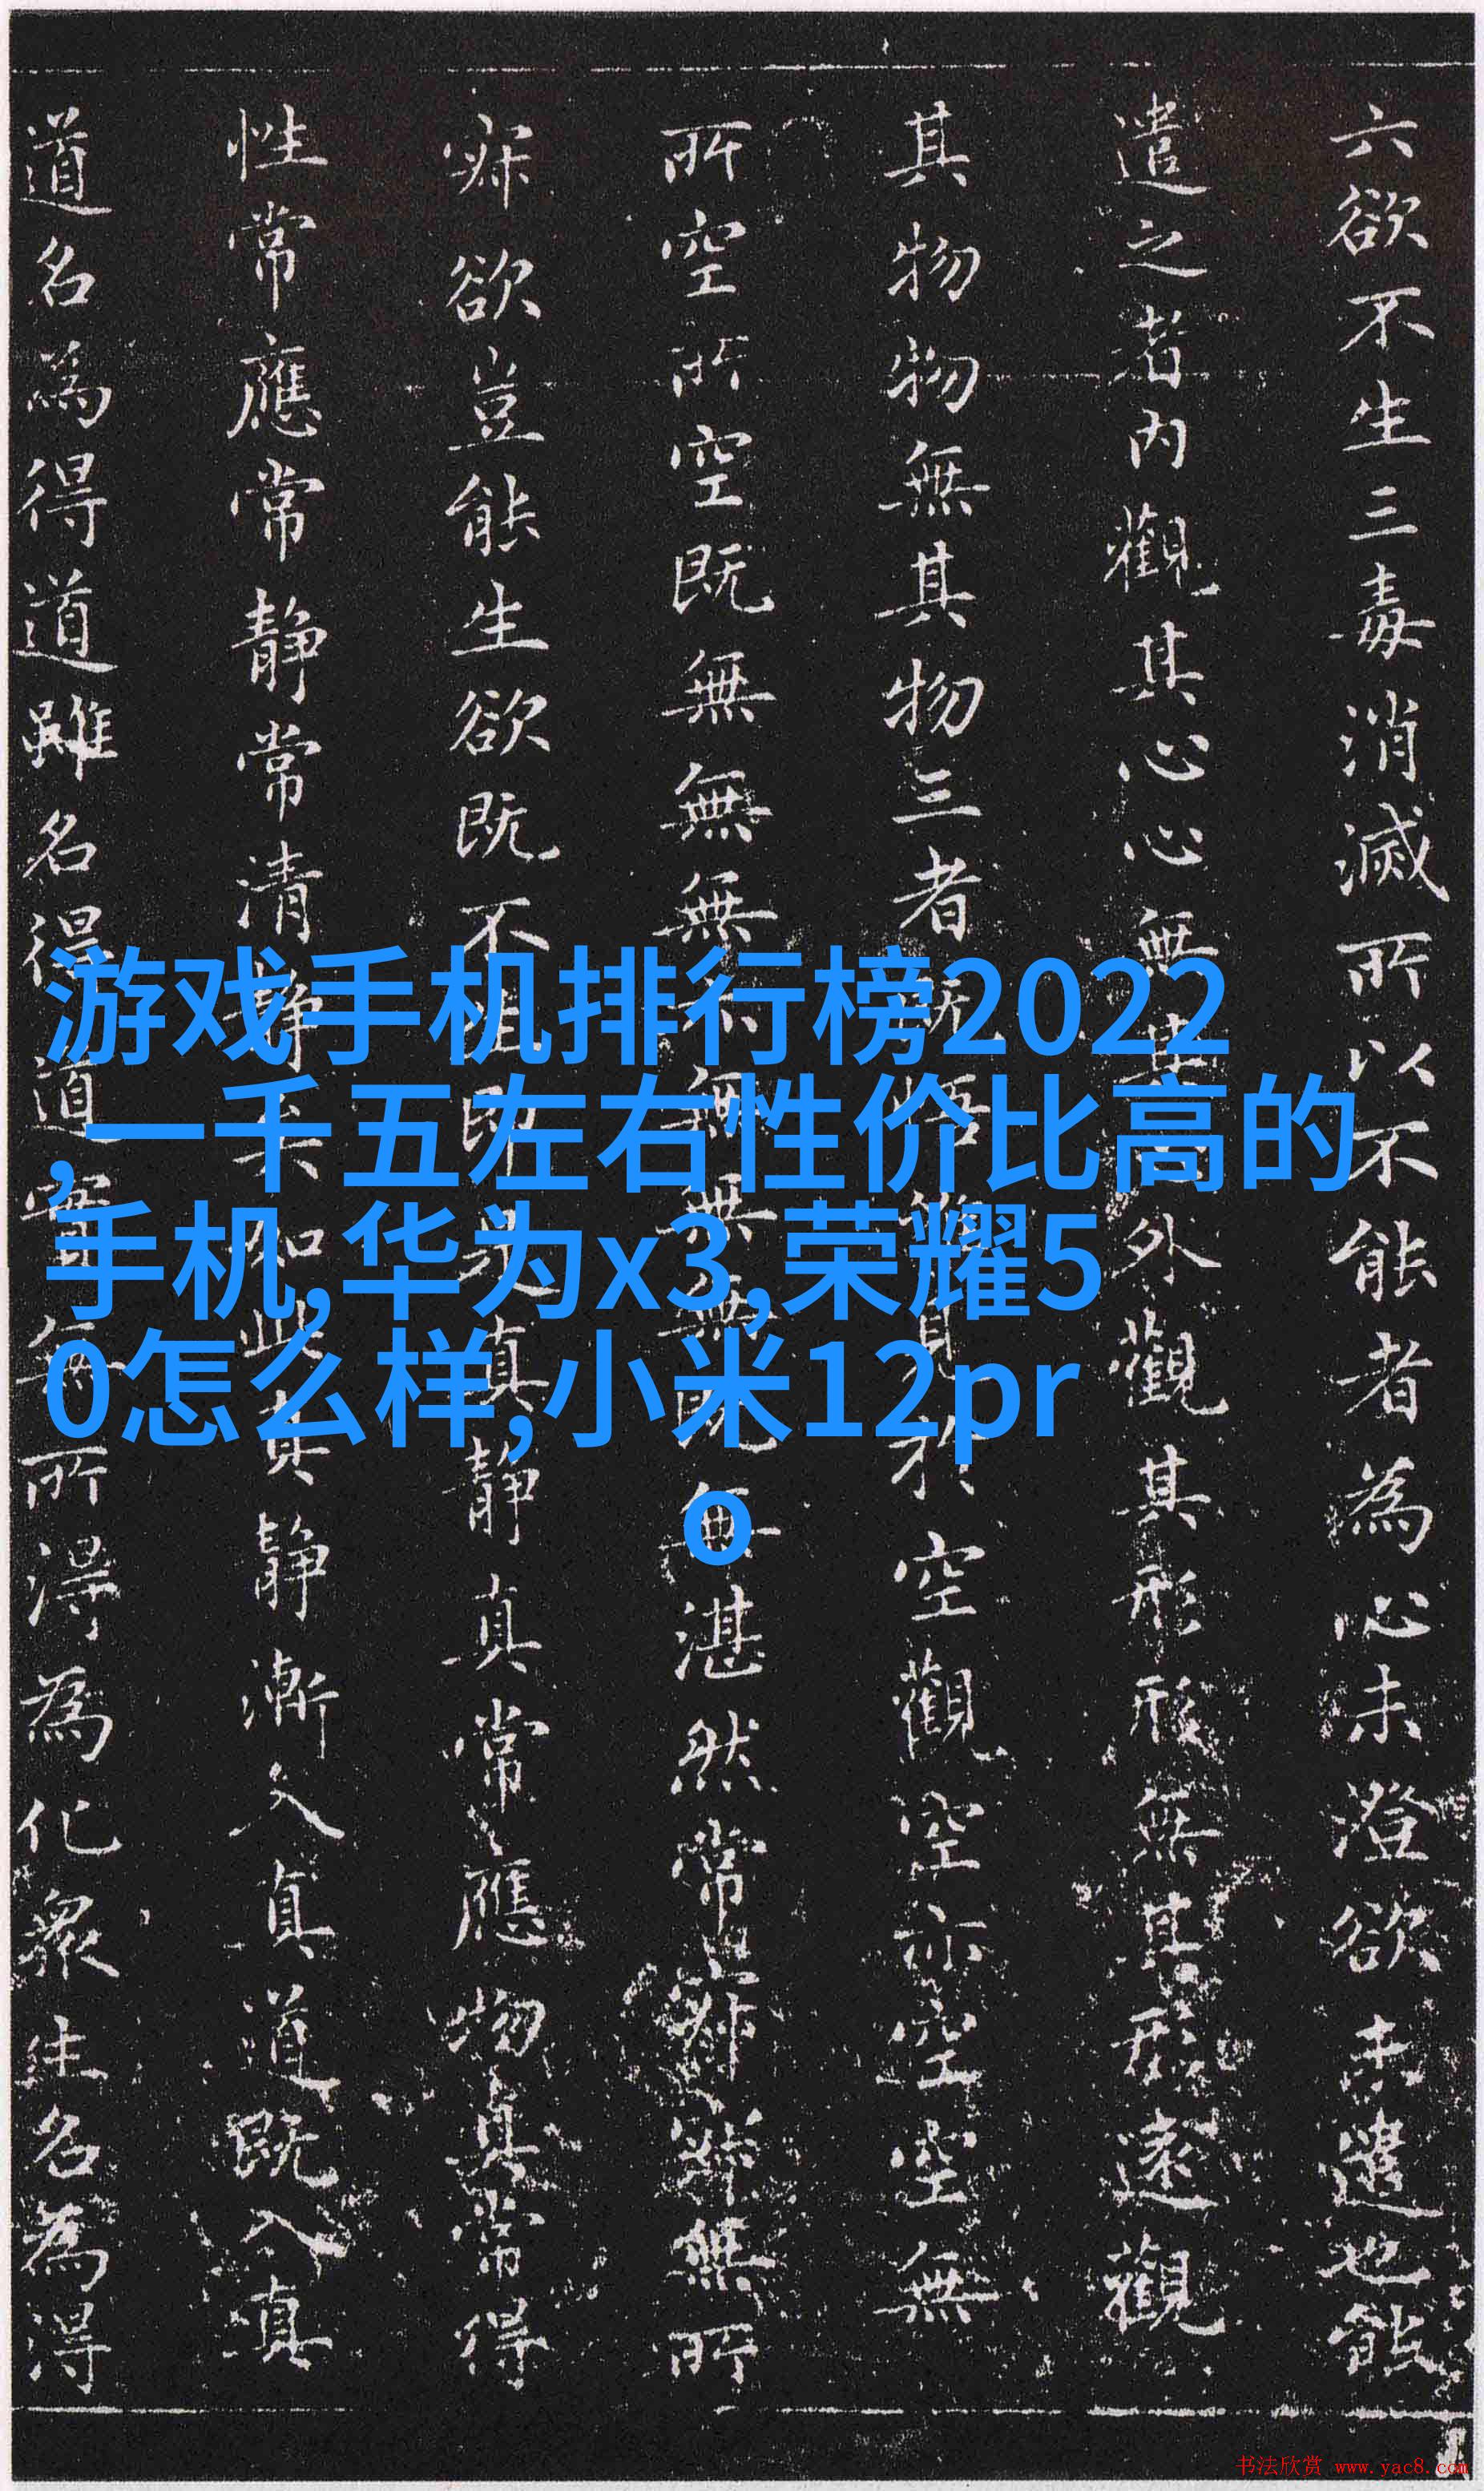 六欲不生三毒消滅所以不能者為心未澄欲未遣也能
遣之者內觀其心心無其心外觀其形形無其形遠觀
其物物無其物三者既悟唯見於空觀空亦空空無
所空所空既無無無亦無無無既無湛然常寂寂無所
寂欲豈能生欲既不生即是真靜真常應物真常得
性常應常静常清静矣如此真静漸入真道既入真
道名為得道雖名得道實無所得為化眾生名為得
游戏手机排行榜2022
,一千五左右性价比高的
手机,华为x3,荣耀5
0怎么样,小米12pr
o
书法欣赏 www.yac8.com